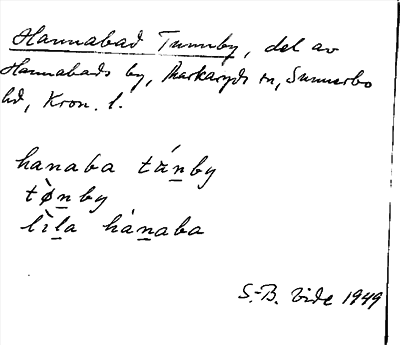 Hannabad Tunnby, del av
Hannabads by, Markaryds sn, Sunnerbo
hd, Kron. l.
hanaba tán̲by
tø̀n̲by
lìl̲a hàn̲aba
S.-B. Vide 1949